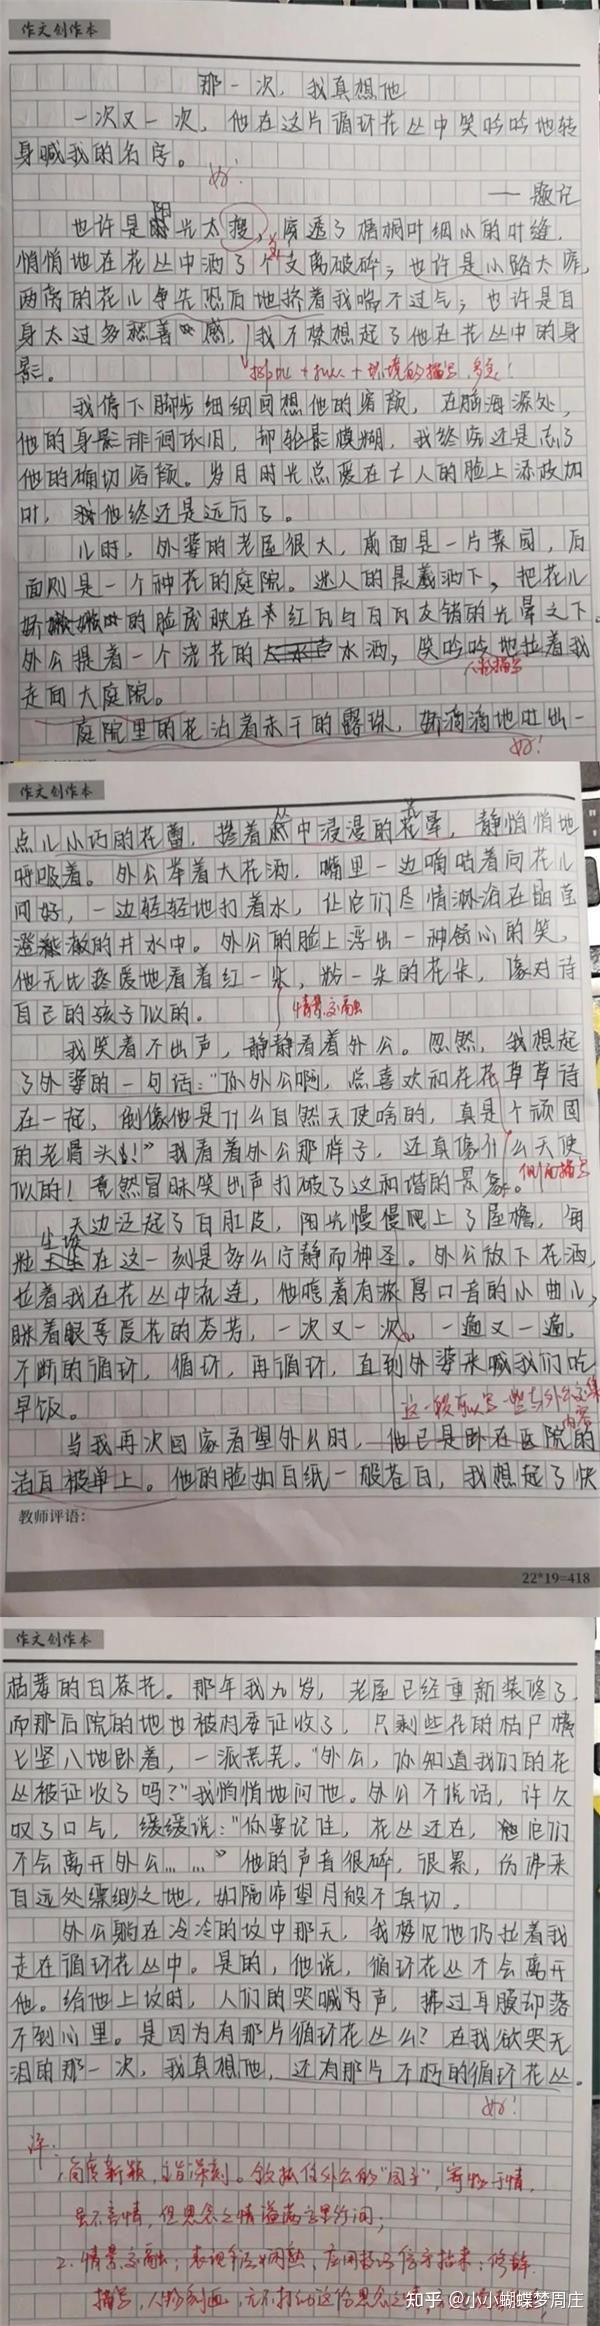 作文创作本
那一次，我真想他
一次又一次，他在这片循环花丛中笑吟吟地转
身喊我的名字。
好！
——题记
也许是阳光太瘦，席透了梧桐叶细小的叶缝，
悄悄地在花丛中洒了个支离破碎；也许是小路太窄，
两旁的花儿争先恐后地挤着我喘不过气；也许是自
身太过多愁善感，我不禁想起了他在花丛中的身
影。
环境的描写
我停下脚步细细回想他的容颜，在脑海深处，
他的身影徘徊依旧，却轮影模糊，我终究还是忘了
他的确切容颜。岁月时光总爱在亡人的脸上添故加
时，他终还是远行了。
儿时，外婆的老屋很大，前面是一片菜园，后
面则是一个种花的庭院。迷人的晨曦洒下，把花儿
娇嫩嫩的脸庞映在红瓦与白瓦交错的光晕之下。
外公提着一个浇花的水洒，笑吟吟地拉着我
人物描写
走向大庭院。
庭院里的花沾着未干的露珠，娇滴滴地吐出一
好！
作文创作本
点儿小巧的花蕾，掺着丛中浸漫的花晕，静悄悄地
呼吸着。外公举着大花洒，嘴里一边嘀咕着向花儿
问好，一边轻轻地打着水，让它们尽情淋浴在晶莹
澄澈的井水中。外公的脸上浮出一种舒心的笑，
他无比疼爱地看着红一朵，粉一朵的花朵，像对待
自己的孩子似的。
情景交融
我笑着不出声，静静看着外公。忽然，我想起
了外婆的一句话：“你外公啊，总喜欢和花花草草待
在一起，倒像他是什么自然天使啥的，真是个顽固
的老骨头！”我看着外公那样子，还真像什么天使
似的！竟然冒昧笑出声打破了这和谐的景象。
侧面描写
天边泛起了白肚皮，阳光慢慢爬上了屋檐，每
粒尘埃在这一刻是多么宁静而神圣。外公放下花洒，
拉着我在花丛中流连，他唱着有浓厚口音的小曲儿，
眯着眼享受花的芬芳，一次又一次，一遍又一遍，
不断的循环，循环，再循环，直到外婆来喊我们吃
早饭。
这一段可以写一些与外公交集
内容
当我再次回家看望外公时，他已是卧在医院的
洁白被单上。他的脸如白纸一般苍白，我想起了快
教师评语：
22*19=418
作文创作本
枯萎的白茶花。那年我九岁，老屋已经重新装修了，
而那后院的地也被村委征收了，只剩些花的枯尸横
七竖八地卧着，一派荒芜。“外公，你知道我们的花
丛被征收了吗？”我悄悄地问他。外公不说话，许久
叹了口气，缓缓说：“你要记住，花丛还在，它们
不会离开外公……”他的声音很碎，很累，仿佛来
自远处缥缈之地，如隔帘望月般不真切。
外公躺在冷冷的坟中那天，我梦见他仍拉着我
走在循环花丛中。是的，他说，循环花丛不会离开
他。给他上坟时，人们的哭喊声，拂过耳膜却落
不到心里。是因为有那片循环花丛么？在我欲哭无
泪的那一次，我真想他，还有那片不朽的循环花丛。
好！
评：
1.角度新颖，立旨深刻。叙抓住外公的“园子”，寄物于情，
虽不言情，但思念之情溢满字里行间；
2.情景交融；表现手法娴熟，应用技巧信手拈来；修辞、
描写，人物刻画，无不打动这份思念之情
知乎 @小小蝴蝶梦周庄